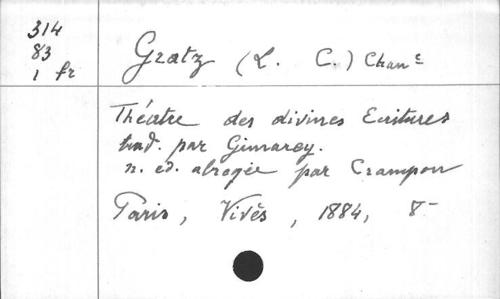 314
83
1 fr
Gratz (L. C.) Chanᵉ
Théatre des divines Ecritures
trad. par Gimarey.
n. ed. abrogée par Crampon
Paris, Vivès, 1884, 8-